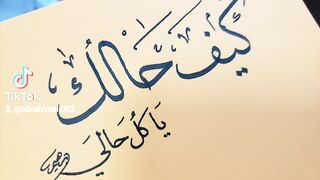 كَيْفَ حَالُك
يَا كُلَّ حَالِي
TikTok
@abrahime.002